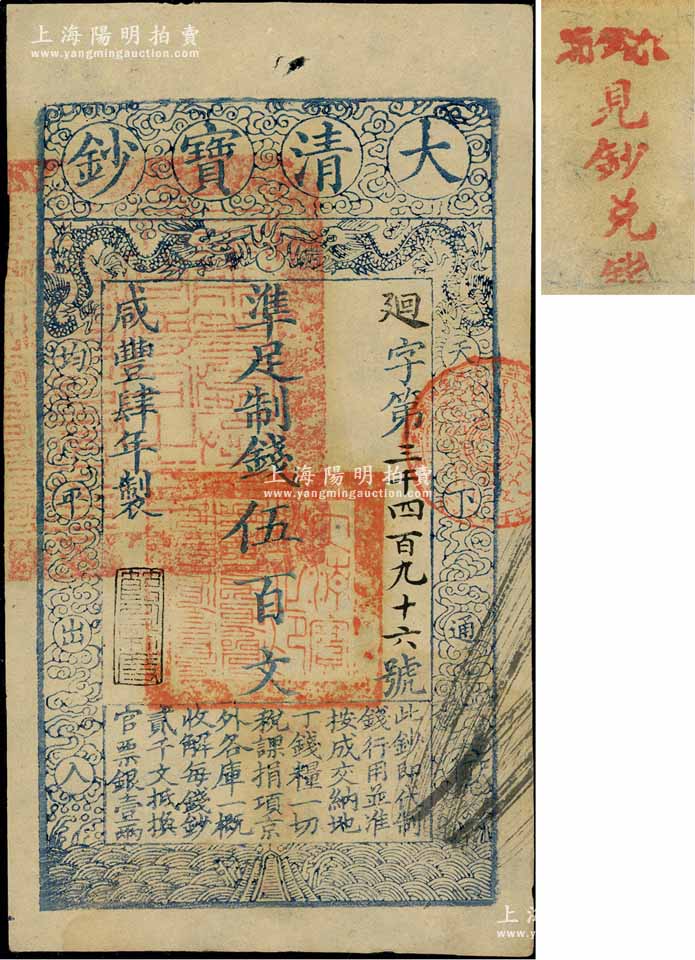 上海陽明拍賣
www.yangmingauction.com
大清寶鈔
天下通行
均平出入
廻字第三千四百九十六號
準足制錢伍百文
咸豐肆年製
此鈔即代制
錢行用並准
按成交納地
丁錢糧一切
稅課捐項京
外各庫一概
收解每錢鈔
貳千文抵換
官票銀壹兩
上海陽明拍賣
www.yangmingauction.com
見鈔兑錢
上海
www.yan